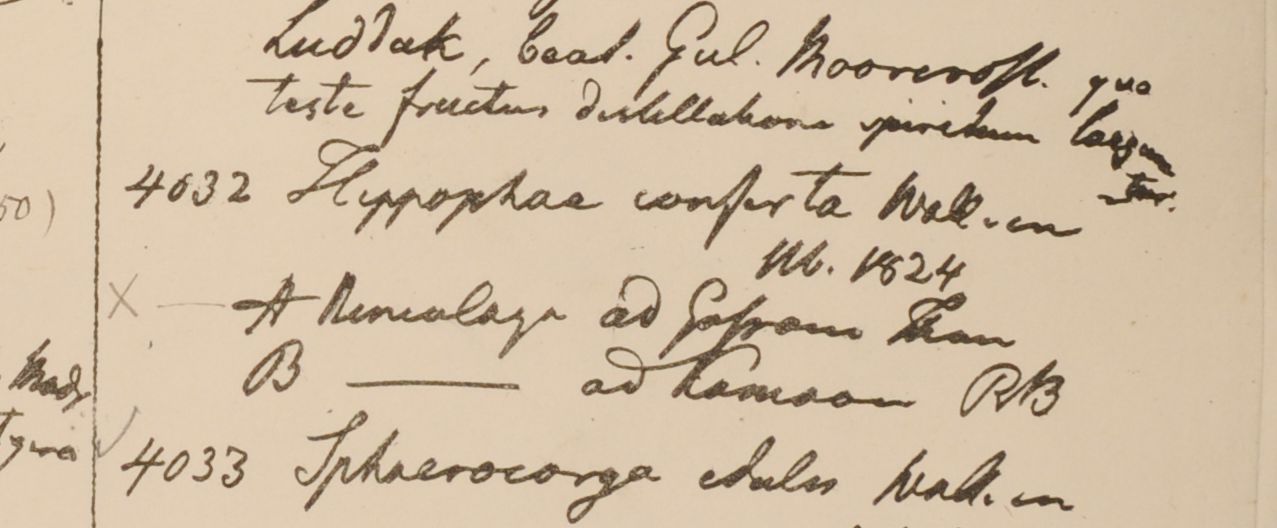 Luddak, beat. Gul. Moorcroft. quo
teste fructus distillatione spiritum largun
tur.
4032 Hippophae conferta Wall. in
lib. 1824
50)
X — A Himalaya ad Gossam Than
B —— ad Kamaon RB
Madr
✓ 4033 Sphaerocarya edulis Wall. in